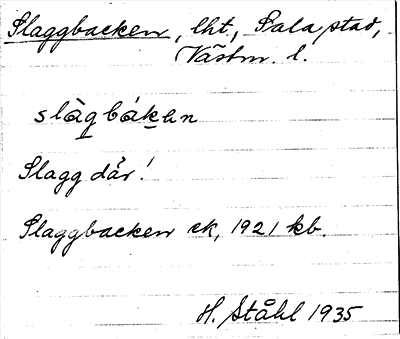 Slaggbacken, lht., Sala stad,
Västm. l.
slàgbákan
Slagg där!
Slaggbacken ek, 1921 kb.
H. Ståhl 1935